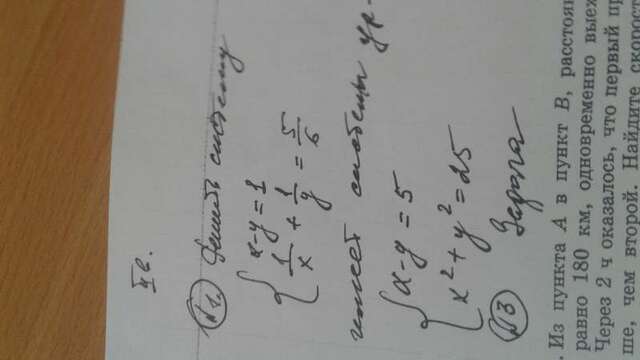 II в.
№1. Решить систему
x-y=1
1/x + 1/y = 5/6
имеет системы ур-
x-y = 5
x²+y²=25
№3 Задача
. Из пункта А в пункт В, расстоян
равно 180 км, одновременно выех
Через 2 ч оказалось, что первый пр
ше, чем второй. Найдите скоро